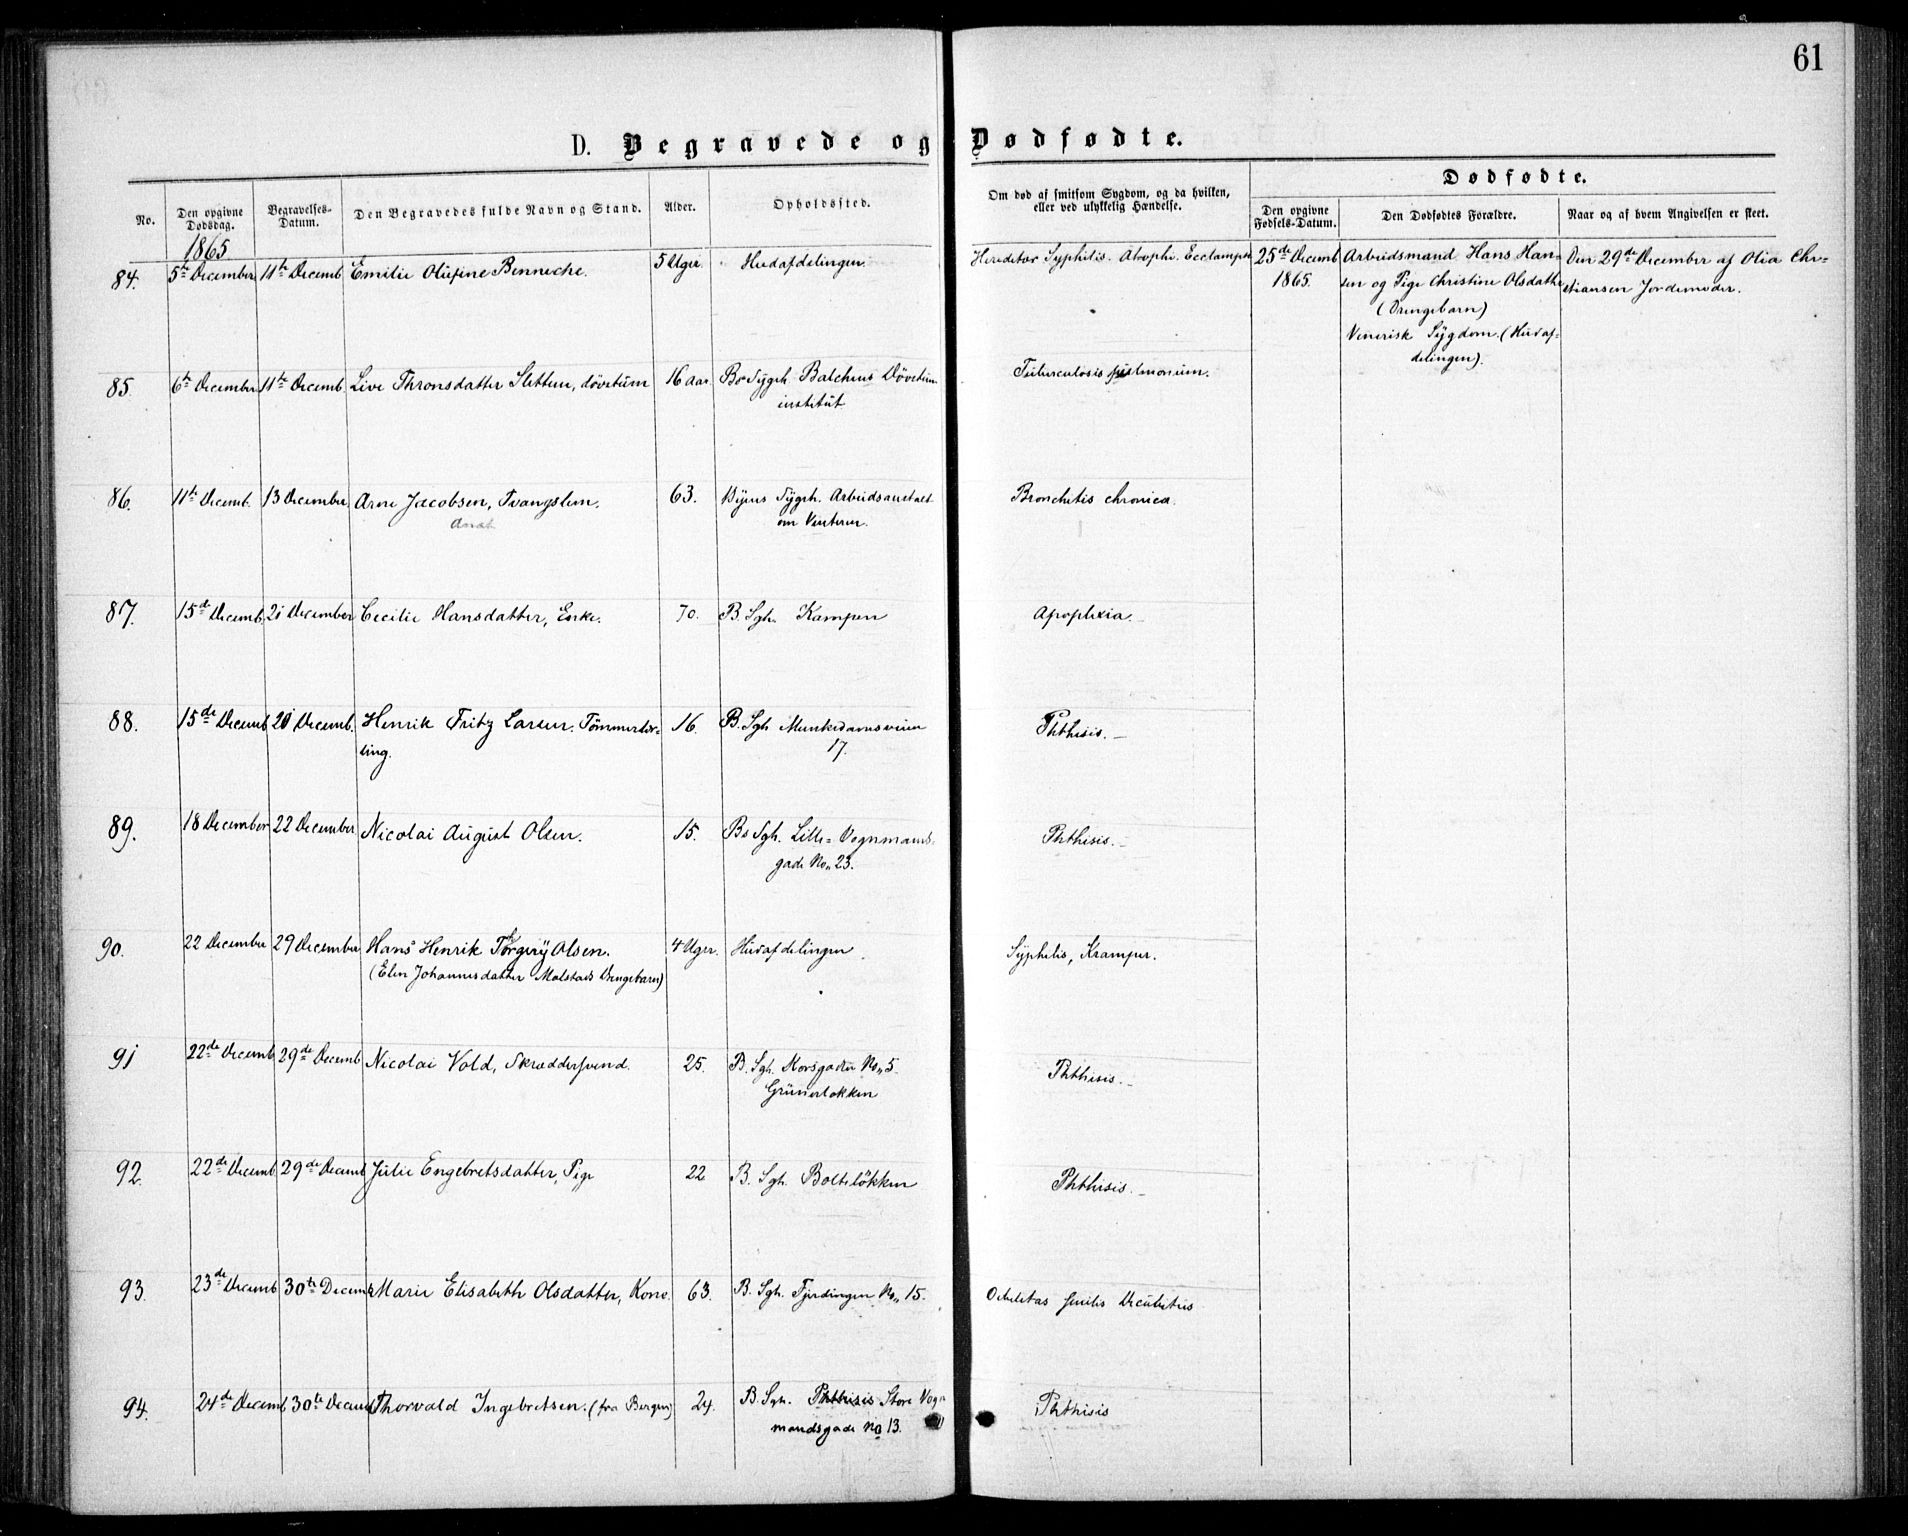 61
D. Begravede og Dødfødte.
No.
Den opgivne Dødsdag.
Begravelses-Datum.
Den Begravedes fulde Navn og Stand.
Alder.
Opholdssted.
Om død af smitsom Sygdom, og da hvilken,
eller ved ulykkelig Hændelse.
Dødfødte.
Den opgivne Fødsels-Datum.
Den Dødfødtes Forældre.
Naar og af hvem Angivelsen er skeet.
1865
84. 5te December 11te Decemb. Emilie Olufine Benneche. 5 Uger. Hudafdelingen. Hereditær Syphilis. Atrophi. Ecclampsi 25de Decemb. Arbeidsmand Hans Han- Den 29de December af Olia Chr-
1865. sen og Pige Christine Olsdatter stiansen Jordemoder.
(Drengebarn)
Venerisk Sygdom. (Hudaf-
delingen).
85. 6te December 11te Decemb. Live Thronsdatter Sletten, døvstum 16 Aar. Bs Sygeh. Balchens Døvstum- Tuberculosis pulmonum.
institut
86. 11te Decemb. 13 December Arne Jacobsen, Tvangslem. 63. Byens Sygeh. Arbeidsanstalt Bronchitis chronica.
Anat. om Vinteren.
87. 15de Decemb. 21 December Cecilie Hansdatter, Enke. 70. B. Sgh. Kampen Apoplexia.
88. 15de Decemb. 20 Decemb. Henrik Fritz Larsen. Tømmerlær- 16. B. Sgh Munkedamsveien Phthisis.
ling. 17.
89. 18 December 22 December Nicolai August Olsen. 15. Bs Sgh. Lille- Vognmands- Phthisis.
gade No. 23.
90. 22 December 29 December Hans Henrik Olsen. 4 Uger. Hudafdelingen Syphilis, Kramper.
(Elen Johannesdatter Molstads Drengebarn)
91 22de Decemb 29de Decemb Nicolai Vold, Skræddersvend. 25. B. Sgh. Norsgaden No. 5. Phthisis.
Grünerløkken
92. 22de Decemb 29de Decemb Julie Engebretsdatter, Pige 22 B. Sgh. Bolteløkken Phthisis.
93. 23de Decemb 30te Decemb Marie Elisabeth Olsdatter, Kone. 63. B. Sgh. Fjerdingen No. 15. Debilitas senilis Decubitus
94. 24de Decemb 30te Decemb Thorvald Ingebretsen. (fra Bergen) 24. B. Sgh. Phthisis Store Vogn- Phthisis
mandsgade No 13.